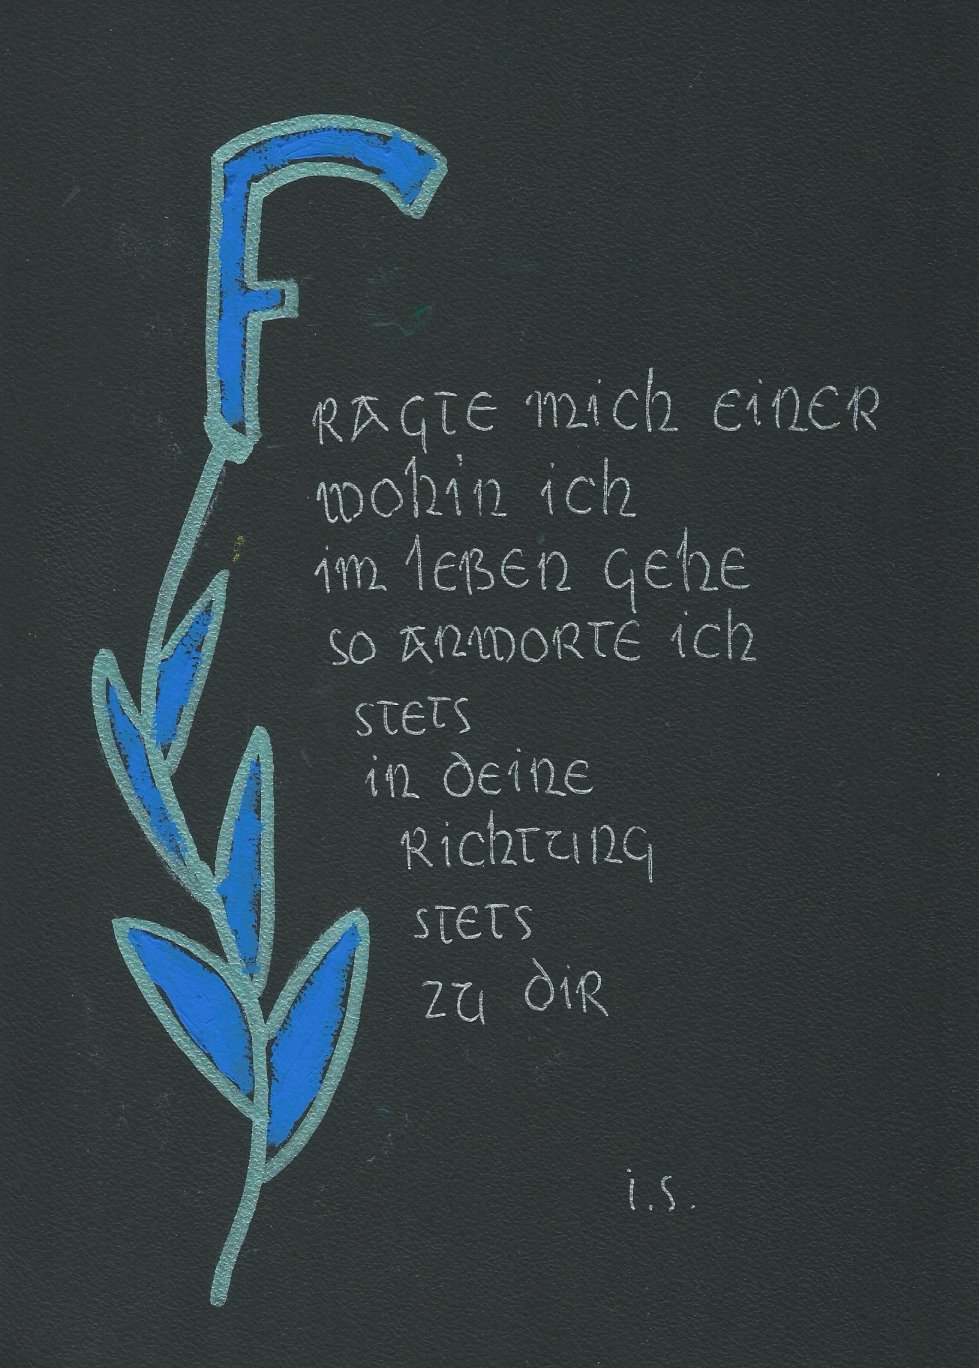 FRAGTE mich EINER
wohin ich
im lEBEN gEhE
so ANWORTE ich
stEts
in dEinE
RichtuNg
stEts
zu diR
i.s.